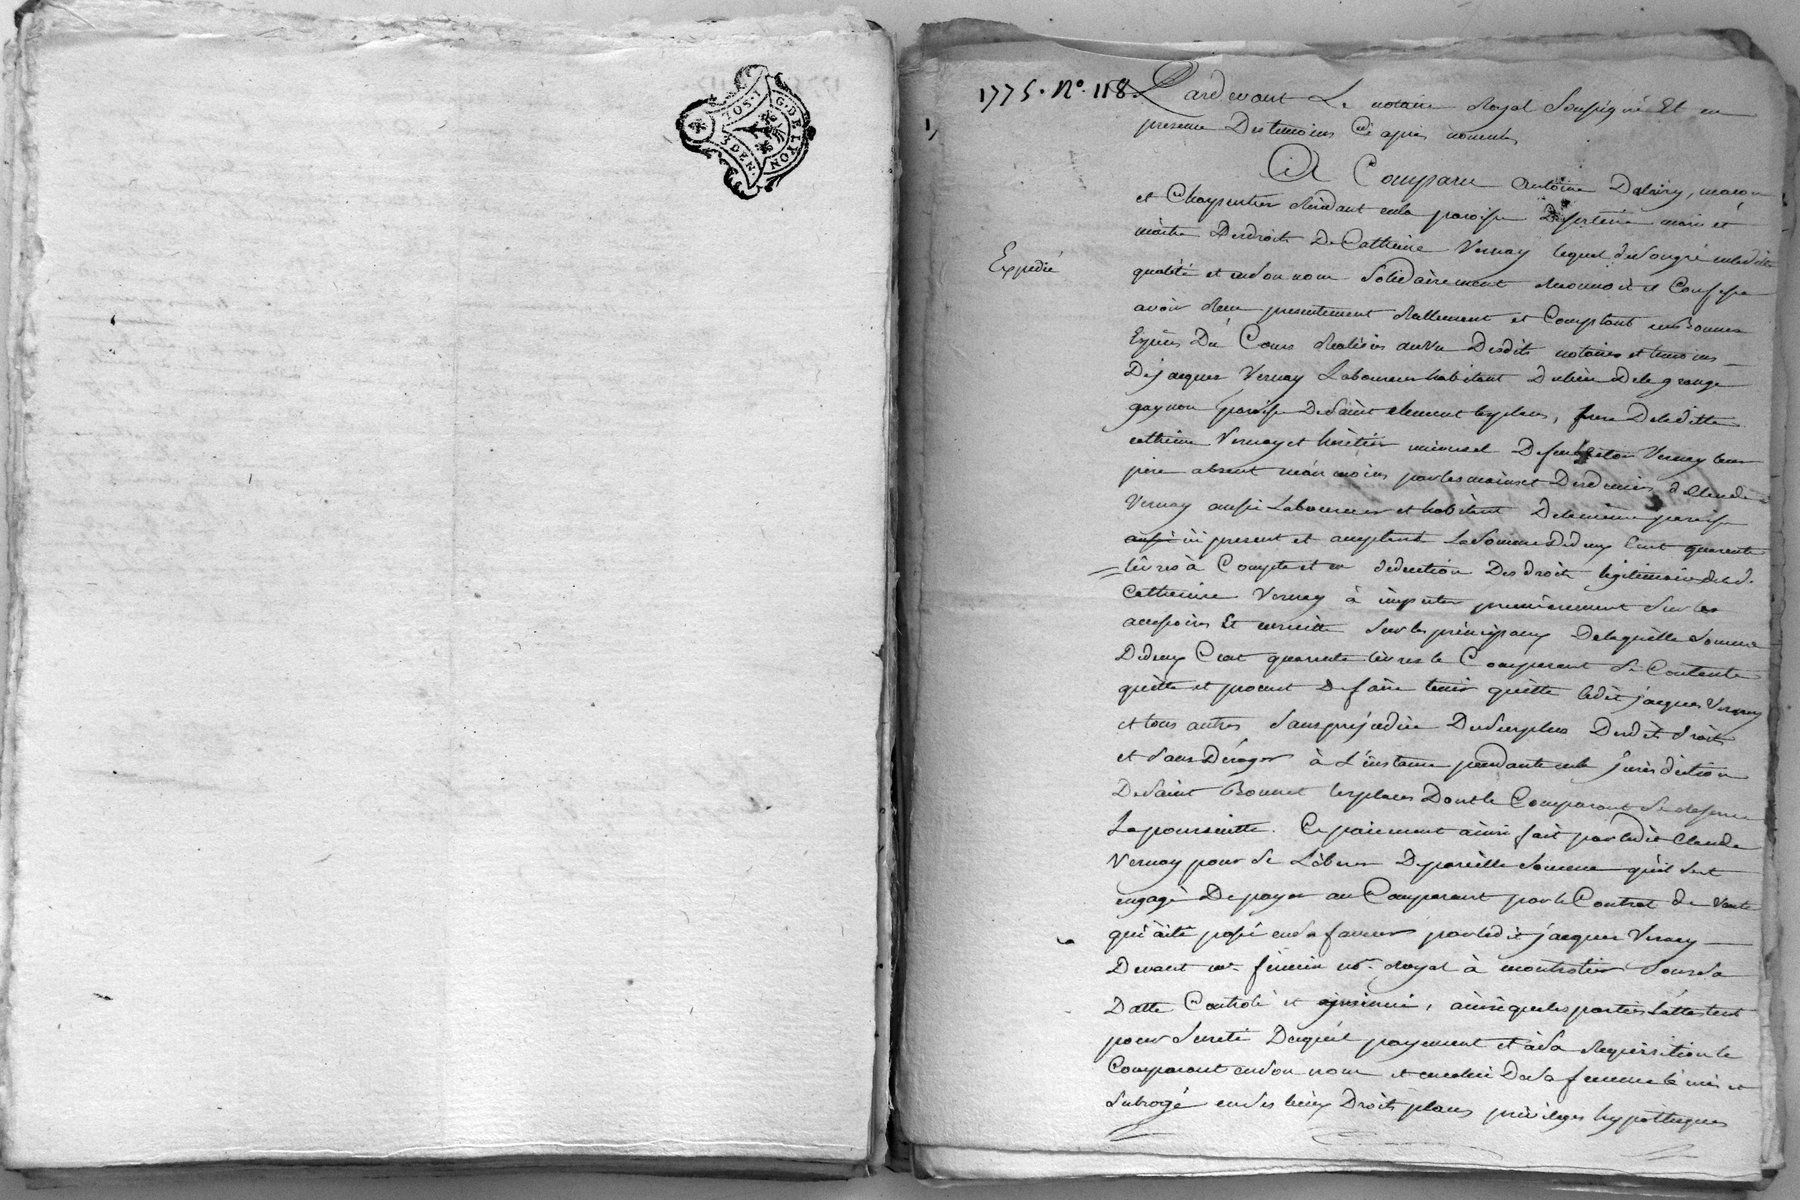 G. DE LYON
3 DEN.
1775. N° 118.
1,
Pardevant Le notaire Royal Soussigné Et en
presence Des temoins Cy apres nommés
A Comparu Antoine Dalairy, maçon
et Charpentier Résidant en la paroisse mari et
maitre Des droits De Catherine Vernay lequel de son gré en ladite
Expedié
qualité et en son nom Solidairement reconnoit et Confesse
avoir Reçu presentement Réellement et Comptant en Bonnes
Espèces Du Cours Realisées au vu Desdits notaires et temoins
De jacques Vernay Laboureur habitant Du lieu De la grange
gaynon paroisse De Saint clement les places, frere De laditte
catherine Vernay et héritier universel De feu Vernay leur
père absent néanmoins par les mains et Des deniers de Claude
Vernay aussi Laboureur et habitant De la même paroisse
aussi ici present et acceptant La Somme De deux Cent quarente
livres à Compte et en deduction Des droits légitimaires de lad.
Catherine Vernay à imputer premièrement Sur les
accessoires Et ensuitte Sur les principaux De laquelle Somme
De deux Cent quarente livres le Comparant Se Contente
quitte et promet De faire tenir quitte ledit jacques Vernay
et tous autres Sans prejudice Du Surplus Desdits droits
et Sans Déroger à L'instance pendante en la jurisdiction
De Saint Bonnet les places Dont le Comparant Se réserve
La poursuitte. Ce paiement ainsi fait par ledit Claude
Vernay pour Se Libérer De pareille Somme qu'il s'est
engagé De payer au Comparant par le Contrat de vente
qui a été passé en sa faveur par ledit jacques Vernay
Devant me. no. Royal à montrotier Sous Sa
Datte Controlé et insinué, ainsi que les parties L'attestent
pour Sureté Duquel payement et à sa Requisition le
Comparant en son nom et en celui De sa femme l'a mis et
Subrogé en ses lieux Droits places privileges hypotheques